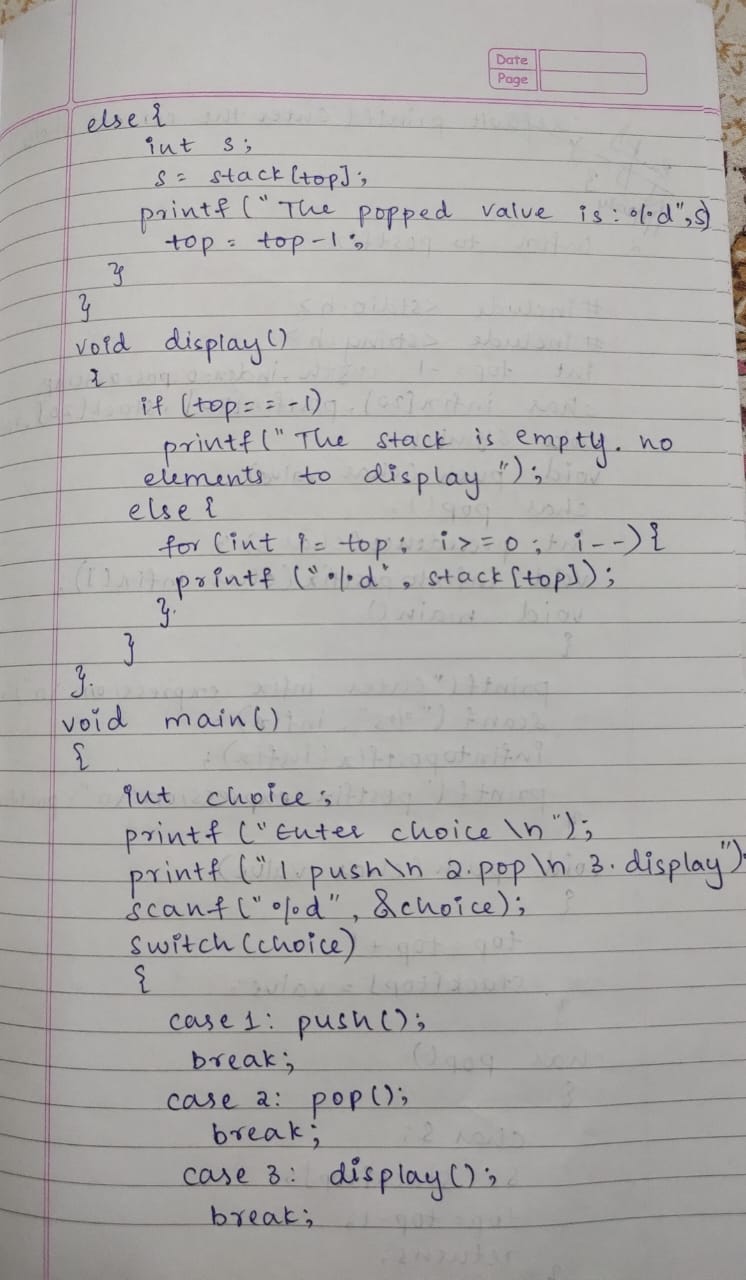 Date
Page
else {
int s;
s = stack[top];
printf("The popped value is: %d",s)
top = top-1;
}
}
void display()
{
if (top == -1)
printf("The stack is empty. no
elements to display");
else {
for (int i = top; i >= 0; i--) {
printf("%d", stack[top]);
}.
}
}.
void main()
{
int choice;
printf("Enter choice \n");
printf("1. push\n 2. pop\n 3. display");
scanf("%d", &choice);
switch(choice)
{
case 1: push();
break;
case 2: pop();
break;
case 3: display();
break;